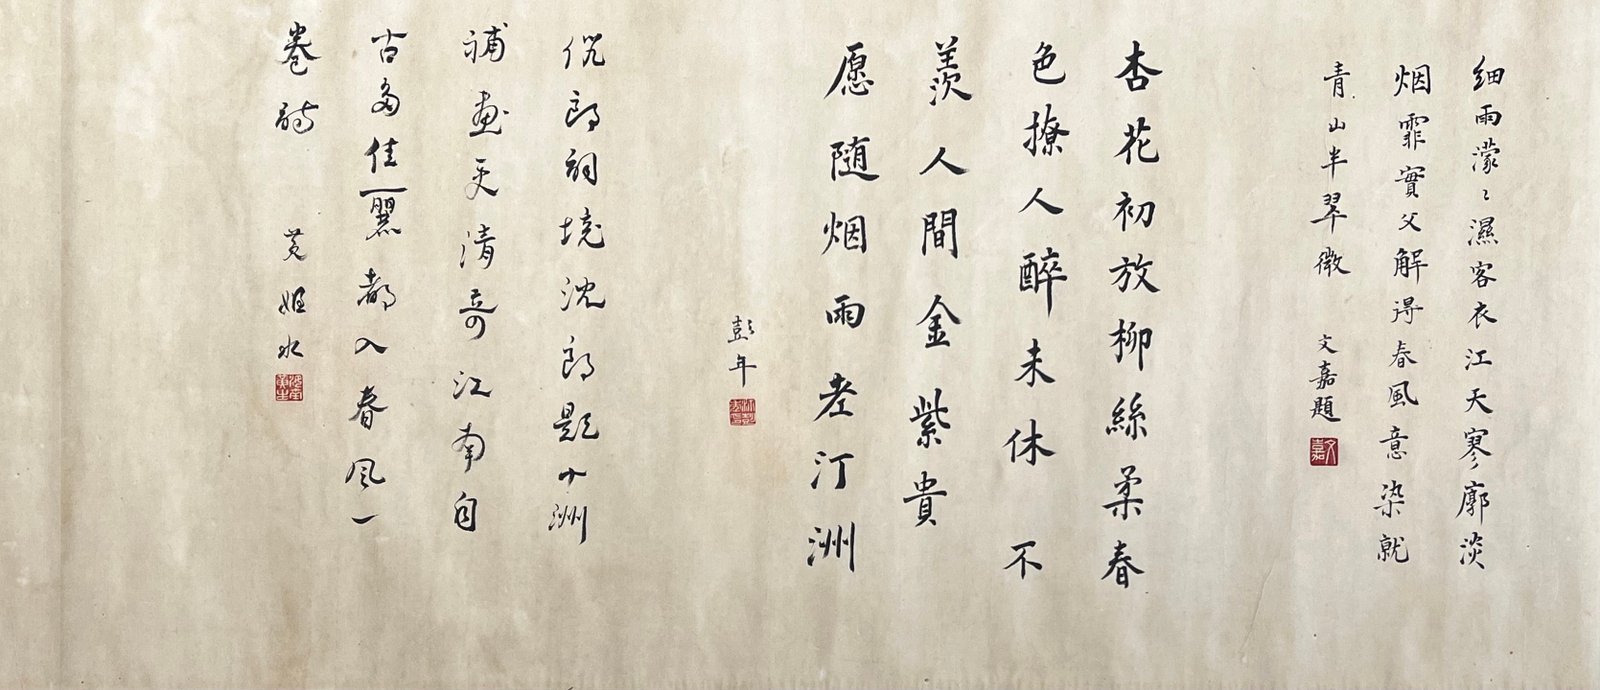 细雨濛〻濕客衣江天寥廓淡
烟霏實父解得春風意染就
青山半翠微 文嘉題
文嘉
杏花初放柳絲柔春
色撩人醉未休不
羨人間金紫貴
愿随烟雨老汀洲
彭年
倪郎詞境沈郎题十洲
補畫更清奇江南自
古多佳麗都入春风一
卷詩 黄姬水